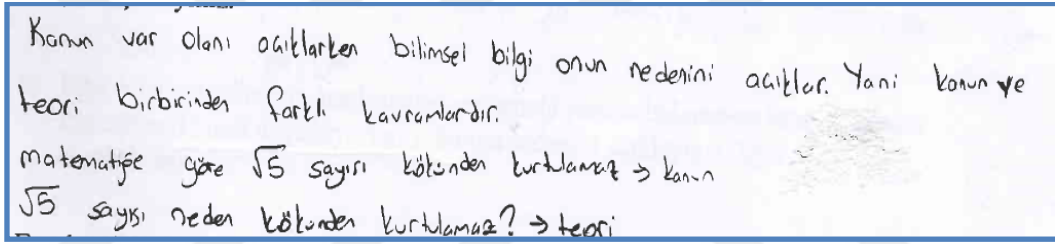 Kanun var olanı açıklarken bilimsel bilgi onun nedenini açıklar. Yani kanun ve
teori birbirinden farklı kavramlardır.
matematiğe göre √5 sayısı kökünden kurtulamaz → kanun
√5 sayısı neden kökünden kurtulamaz? → teori